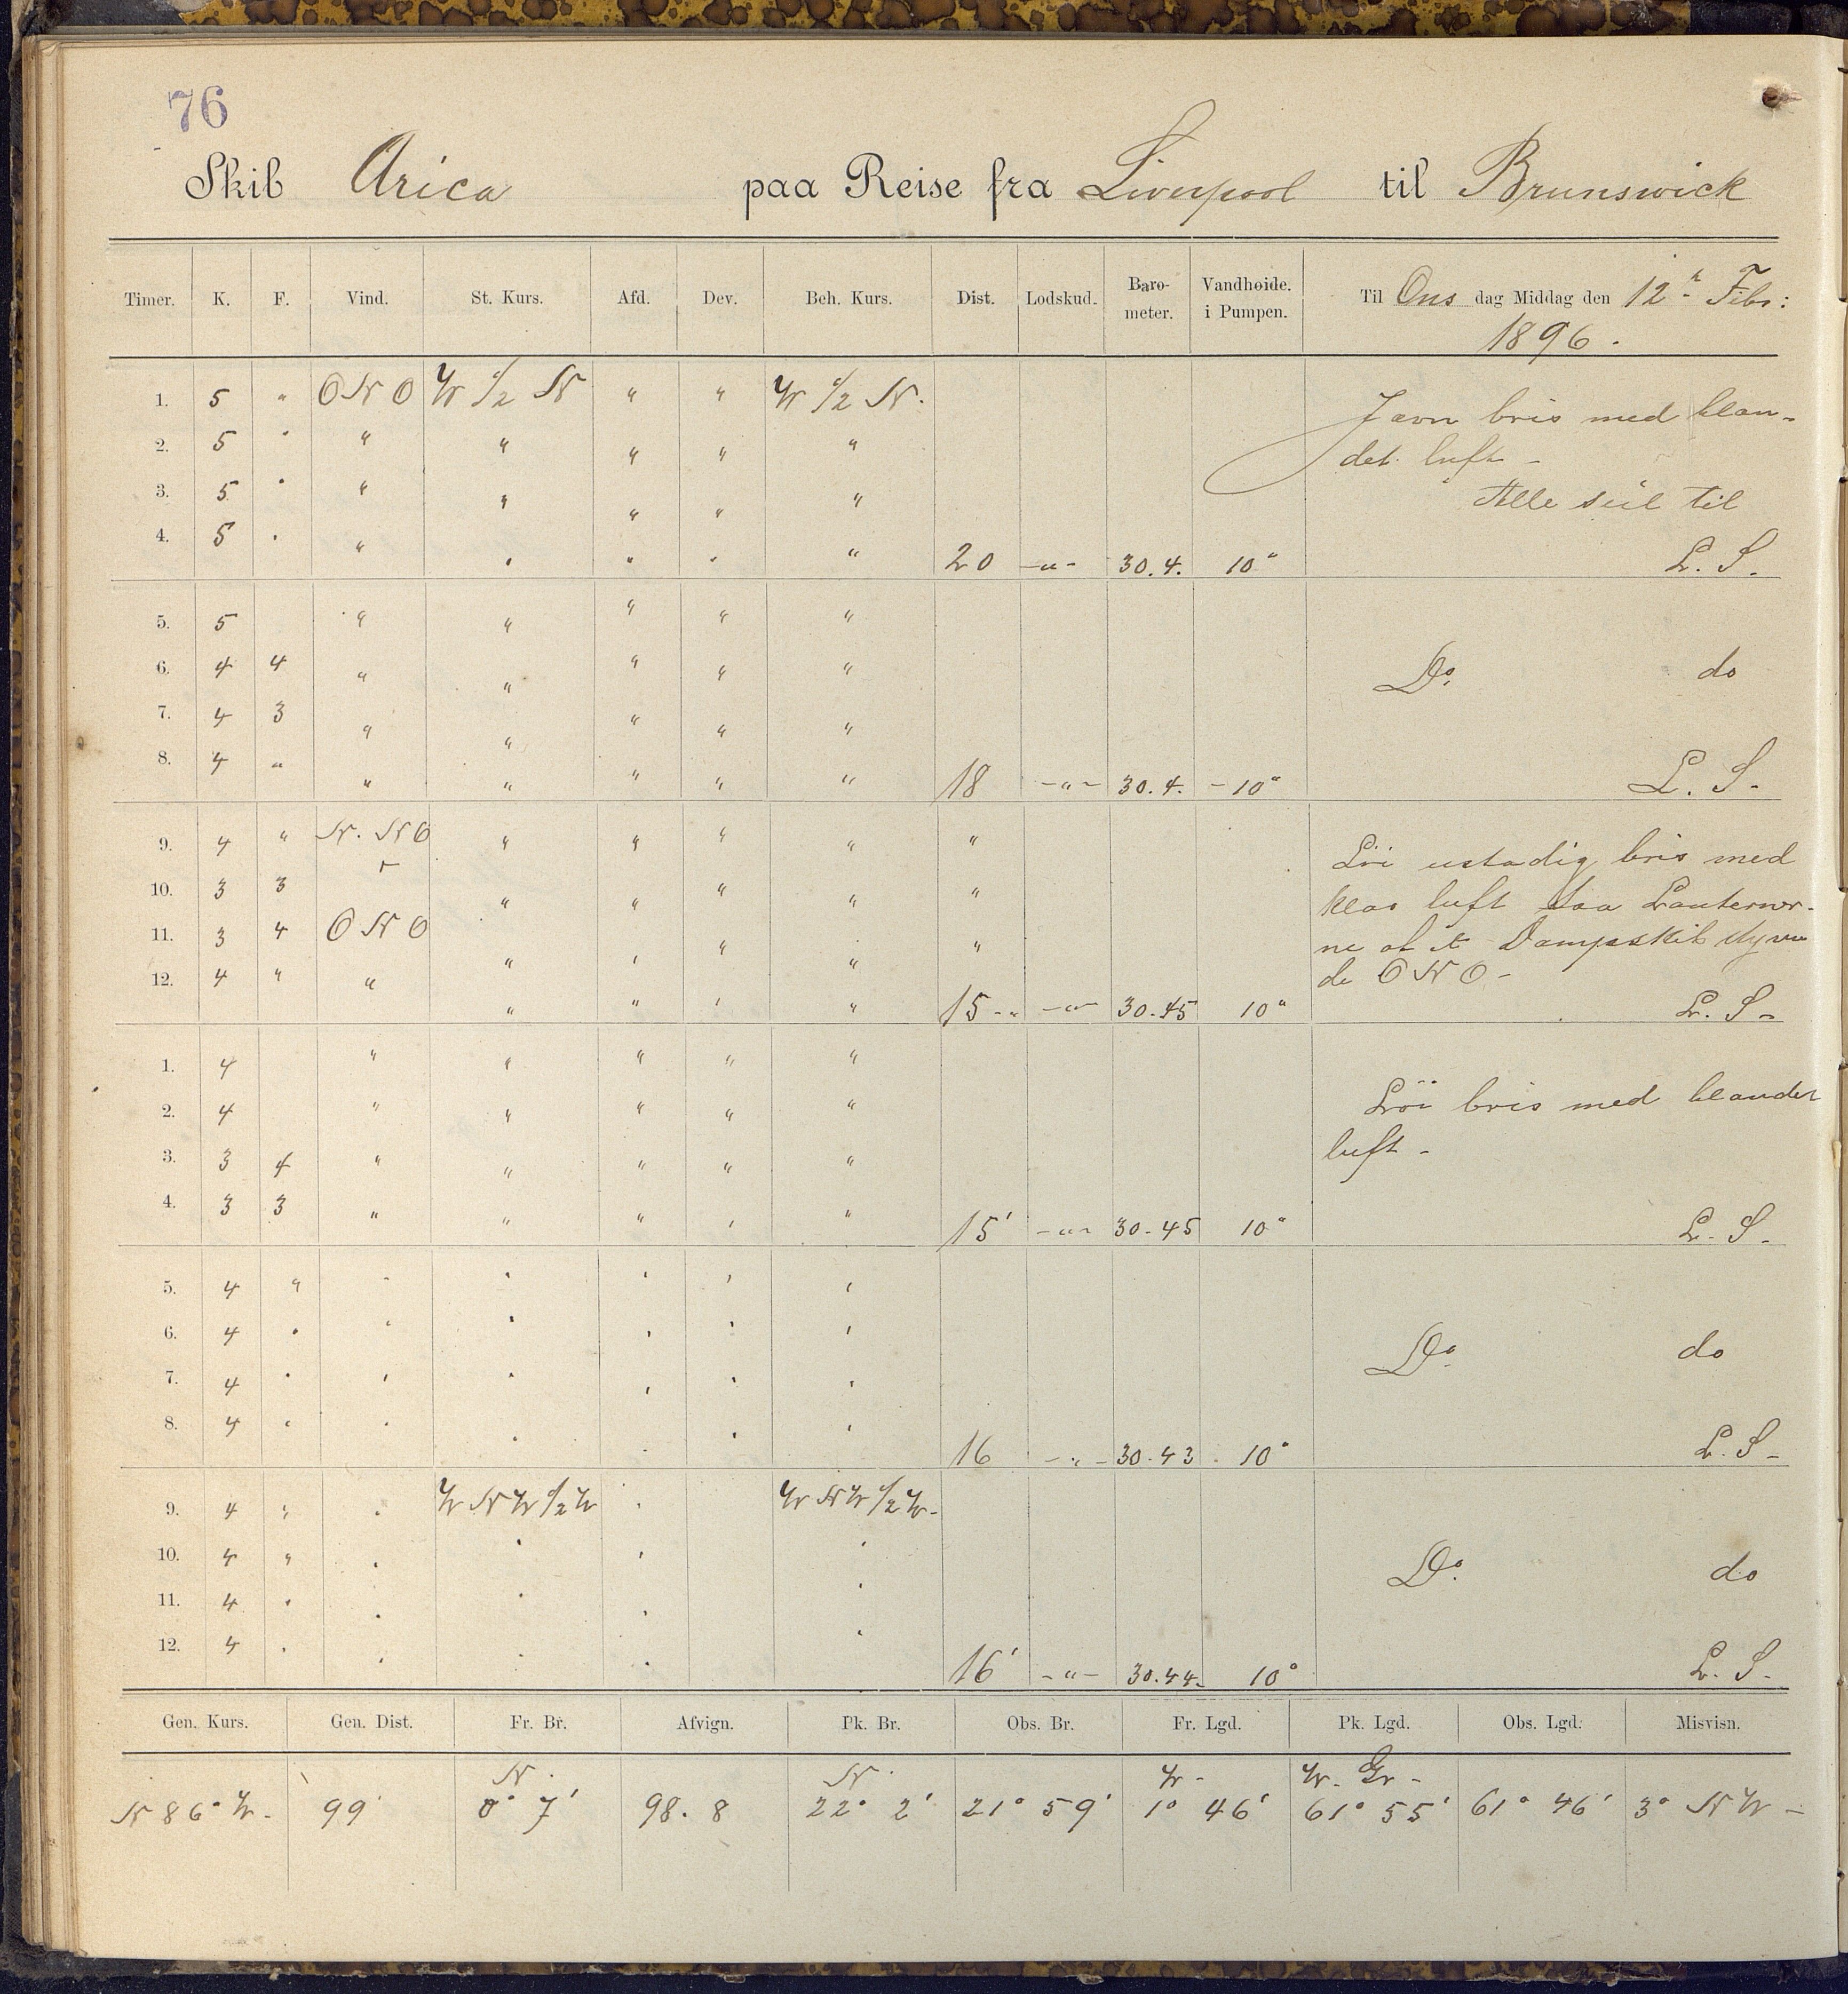 76
Skib Arica paa Reise fra Liverpool til Brunswick
Timer. K. F. Vind. St. Kurs. Afd. Dev. Beh. Kurs. Dist. Lodskud. Barometer. Vandhøide. i Pumpen. Til Ons dag Middag den 12te Febr: 1896.
1. 5 " ONO W 1/2 N " " W 1/2 N. Jævn bris med blan-
2. 5 " " " " " " det luft -
3. 5 " " " " " " Alle seil til
4. 5 " " " " " " 20 -"- 30.4. 10" L. S.
5. 5 " " " " "
6. 4 4 " " " " " Do. do
7. 4 3 " " " " "
8. 4 " " " " " " 18 -"- 30.4. - 10" L. S.
9. 4 " N. NO " " " " " Löi ustadig bris med
10. 3 3 " " " " " klar luft saa Lanterner-
11. 3 4 ONO " " " " " ne af et Dampskib styren
12. 4 " " " " " " 15 -"- 30.45 10" de ONO -
L. S.
1. 4 " " " " "
2. 4 " " " " " Löi bris med blandet
3. 3 4 " " " " " luft -
4. 3 3 " " " " " 15' -"- 30.45 10" L. S.
5. 4 " " " " " "
6. 4 " " " " " " Do. do
7. 4 " " " " " "
8. 4 " " " " " " 16 -"- 30.43 10" L. S.
9. 4 " " WNW 1/2 W " WNW 1/2 W.
10. 4 " " " " " Do. do
11. 4 " " " " "
12. 4 " " " " " 16' -"- 30.44. 10" L. S.
Gen. Kurs. Gen. Dist. Fr. Br. Afvign. Pk. Br. Obs. Br. Fr. Lgd. Pk. Lgd. Obs. Lgd. Misvisn.
N. N. W. W. Gr.
N 86° W. 99' 0° 7' 98.8 22° 2' 21° 59' 1° 46' 61° 55' 61° 46' 3° NW